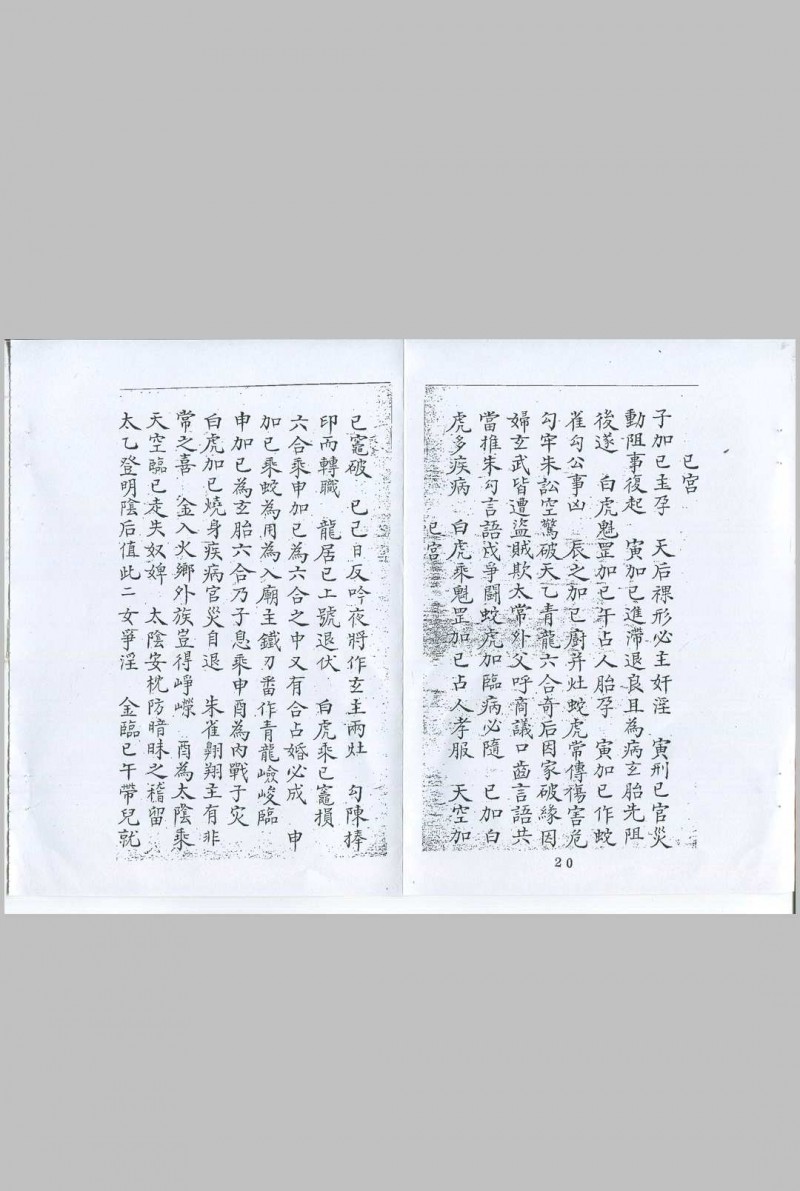 巳宮
子加巳主孕　天后裸形必主奸淫　寅刑巳官災
動阻事復起　寅加巳進滯退良且為病玄胎先阻
後遂　白虎魁罡加巳午占人胎孕　寅加巳作蛟
雀勾公事凶　辰之加巳廚并灶蛟虎常傳傷害危
勾牢朱訟空驚破天乙青龍六合奇后因家破緣因
婦玄武皆遭盜賊欺太常外父呼商議口齒言語共
當推朱勾言語成爭鬪蛟虎加臨病必隨　巳加白
虎多疾病　白虎乘魁罡加巳占人孝服　天空加
巳宮
20
巳竈破　巳巳日反吟夜將作玄主兩灶　勾陳捧
印而轉職　龍居巳上號退伏　白虎乘巳竈損
六合乘申加巳為六合之中又有合占婚必成　申
加巳乘蛟為用為入廟主鐵刃畨作青龍嶮峻臨
申加巳為玄胎六合乃子息乘申酉為內戰子灾
白虎加巳燒身疾病官災自退　朱雀翺翔主有非
常之喜　金入火鄉外族豈得崢嶸　酉為太陰乘
天空臨巳走失奴婢　太陰安枕防暗昧之稽留
太乙登明陰后值此二女爭淫　金臨巳午帶兒就